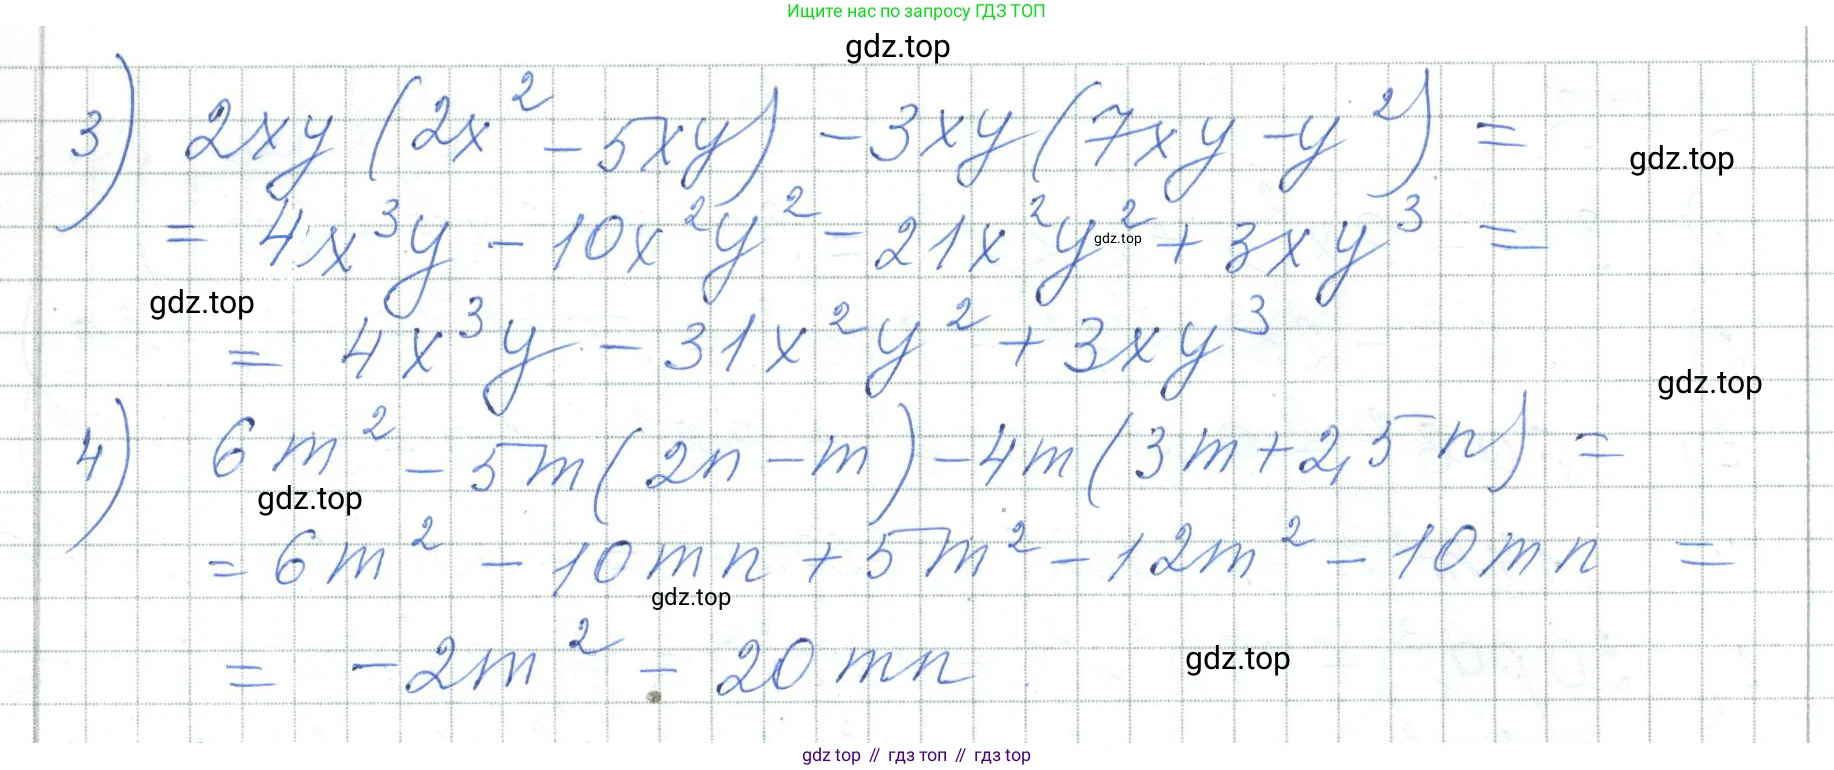 Ищите нас по запросу ГДЗ ТОП
gdz.top
3) 2xy(2x² - 5xy) - 3xy(7xy - y²) =
gdz.top
= 4x³y - 10x²y² - 21x²y² + 3xy³ =
gdz.top
gdz.top
= 4x³y - 31x²y² + 3xy³
gdz.top
4) 6m² - 5m(2n - m) - 4m(3m + 2,5n) =
gdz.top
= 6m² - 10mn + 5m² - 12m² - 10mn =
gdz.top
= -2m² - 20mn
gdz.top
gdz top // гдз топ // гдз top